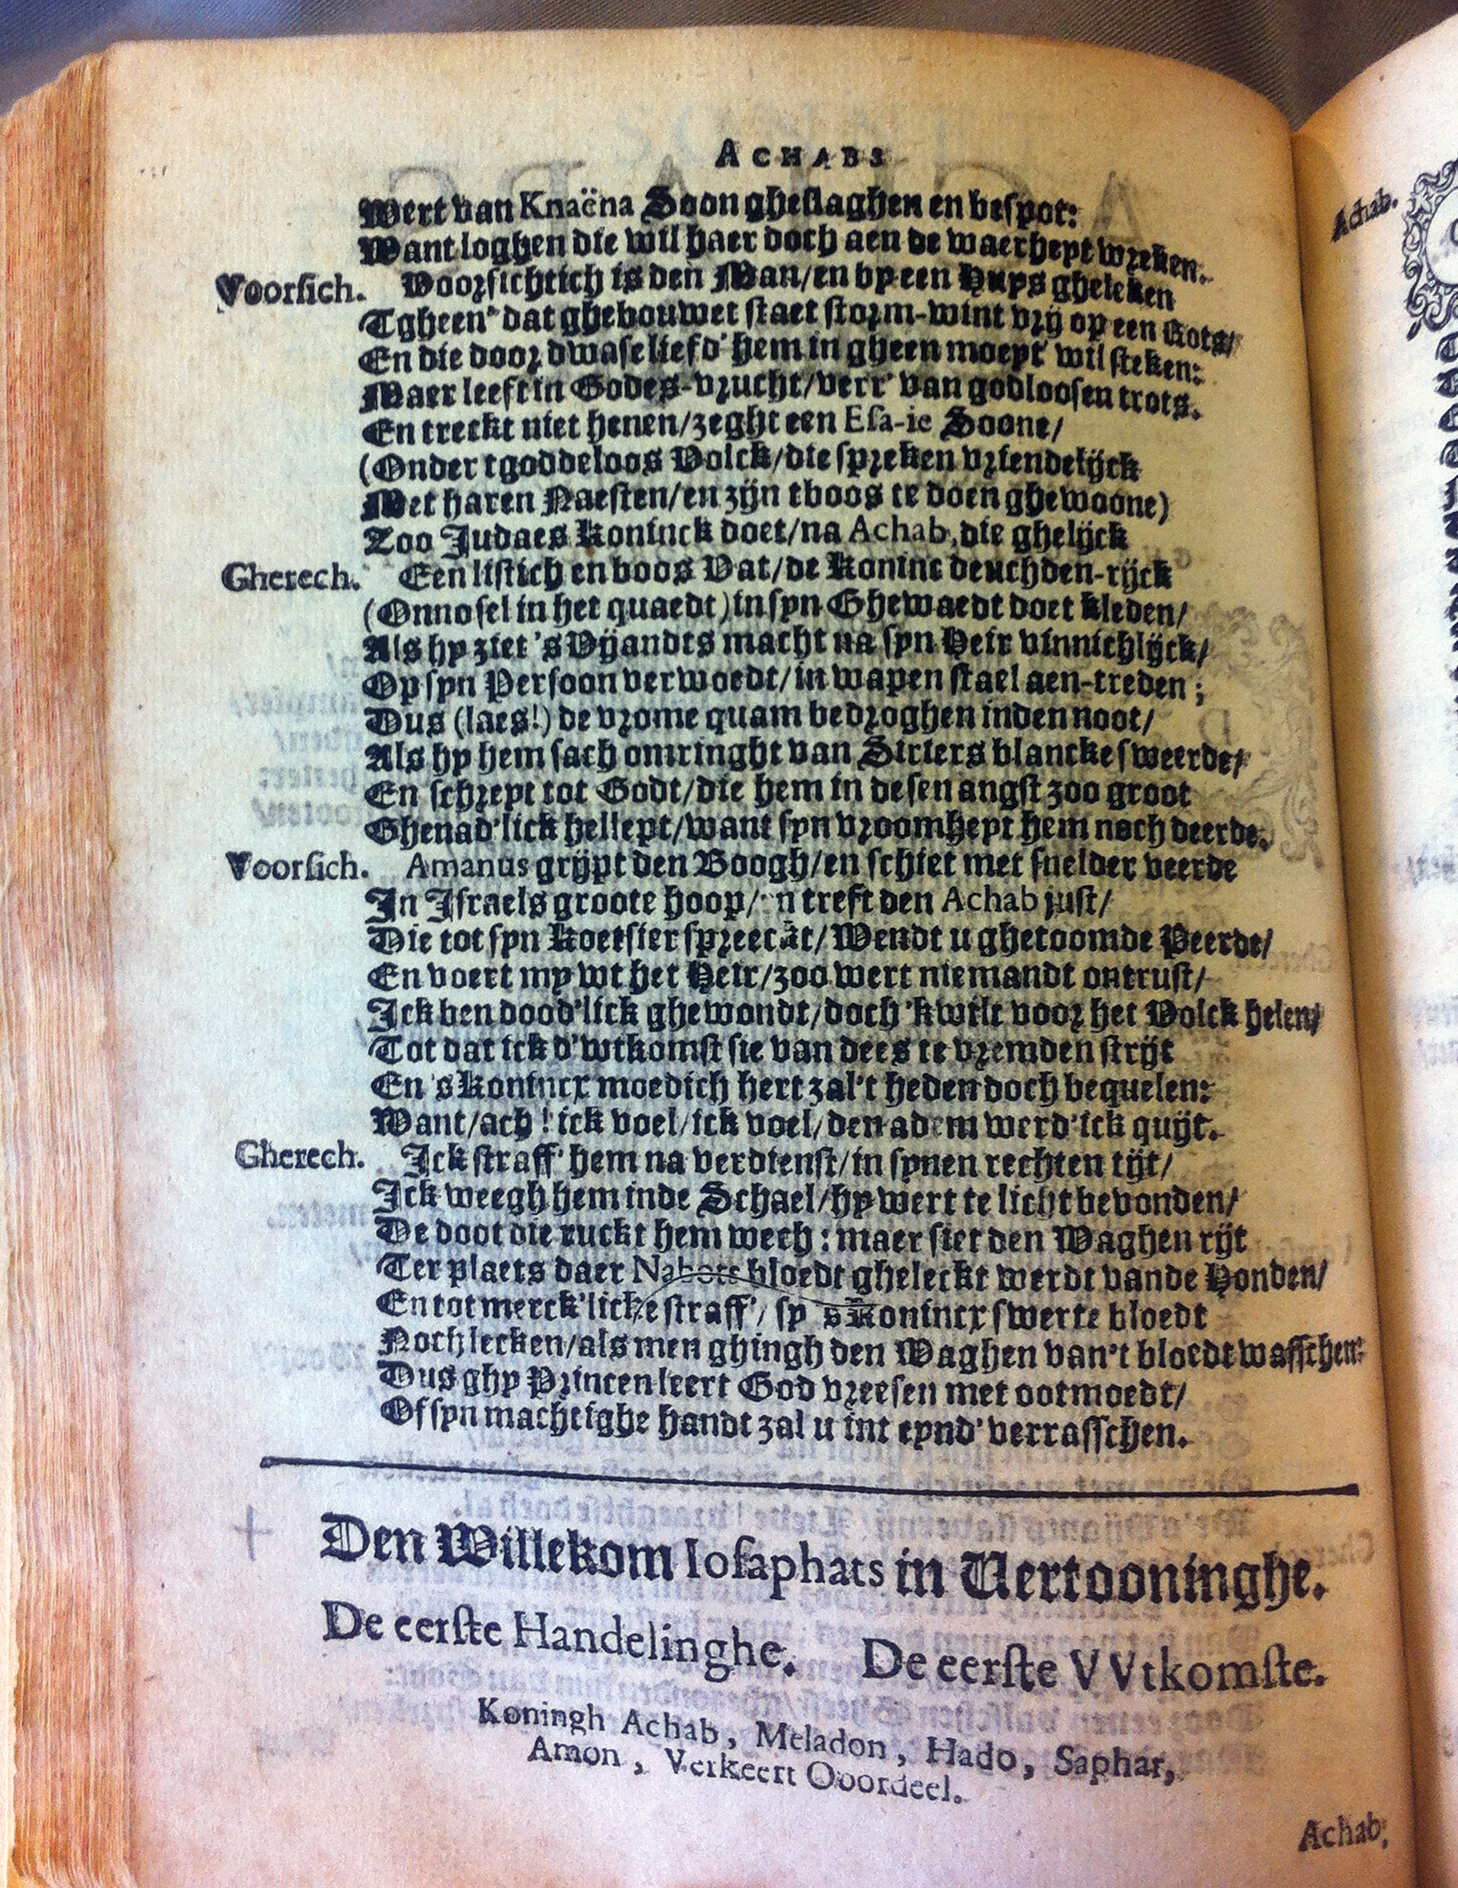 ACHABS
Wert van Knaëna Soon gheslaghen en bespot:
Want loghen die wil haer doch aen de waerheyt wreken.
Voorsich. Voorsichtich is den Man/en by een Huys gheleken
Tgheen' dat ghebouwet staet storm-wint vrij op een Rots/
En die door dwase liefd' hem in gheen moeyt' wil steken:
Maer leeft in Godes-vrucht/verr' van godloosen trots.
En treckt niet henen/zeght een Esa-ie Soone/
(Onder tgoddeloos Volck/die spreken vriendelijck
Met haren Naesten/en zijn tboos te doen ghewoone)
Zoo Judaes Koninck doet/na Achab, die ghelijck
Gherech. Een listich en boos Vat/de Koninc deuchden-rijck
(Onnosel in het quaedt) in syn Ghewaedt doet kleden/
Als hy ziet 's Vijandts macht na syn Heir vinnichlijck/
Op syn Persoon verwoedt/in wapen stael aen-treden;
Dus (laes!) de vrome quam bedroghen inden noot/
Als hy hem sach omringht van Siriers blancke sweerde/
En schreyt tot Godt/die hem in desen angst zoo groot
Ghenad'lick hellept/want syn vroomheyt hem noch deerde.
Voorsich. Amanus grijpt den Boogh/en schiet met snelder veerde
In Israels groote hoop/ n treft den Achab just/
Die tot syn Koetsier spreeckt/Wendt u ghetoomde Peerde/
En voert my wt het Heir/zoo wert niemandt ontrust/
Ick ben dood'lick ghewondt/doch 'kwilt voor het Volck helen/
Tot dat ick d'wtkomst sie van dees te vremden strijt
En 's Konincx moedich hert zal't heden doch bequelen:
Want/ach! ick voel/ick voel/den adem werd'ick quijt.
Gherech. Ick straff' hem na verdienst/in synen rechten tijt/
Ick weegh hem inde Schael/hy wert te licht bevonden/
De doot die ruckt hem wech: maer siet den Waghen rijt
Ter plaets daer Nabots bloedt gheleckt werdt vande Honden/
En tot merck'licke straff'/ sy 's Konincx swerte bloedt
Noch lecken/als men ghingh den Waghen van't bloedt wasschen:
Dus ghy Princen leert God vreesen met ootmoedt/
Of syn machtighe handt zal u int eynd' verrasschen.
Den Willekom Iosaphats in Vertooninghe.
De eerste Handelinghe. De eerste VVtkomste.
Koningh Achab, Meladon, Hado, Saphar,
Amon, Verkeert Ooordeel.
Achab,
Achab.